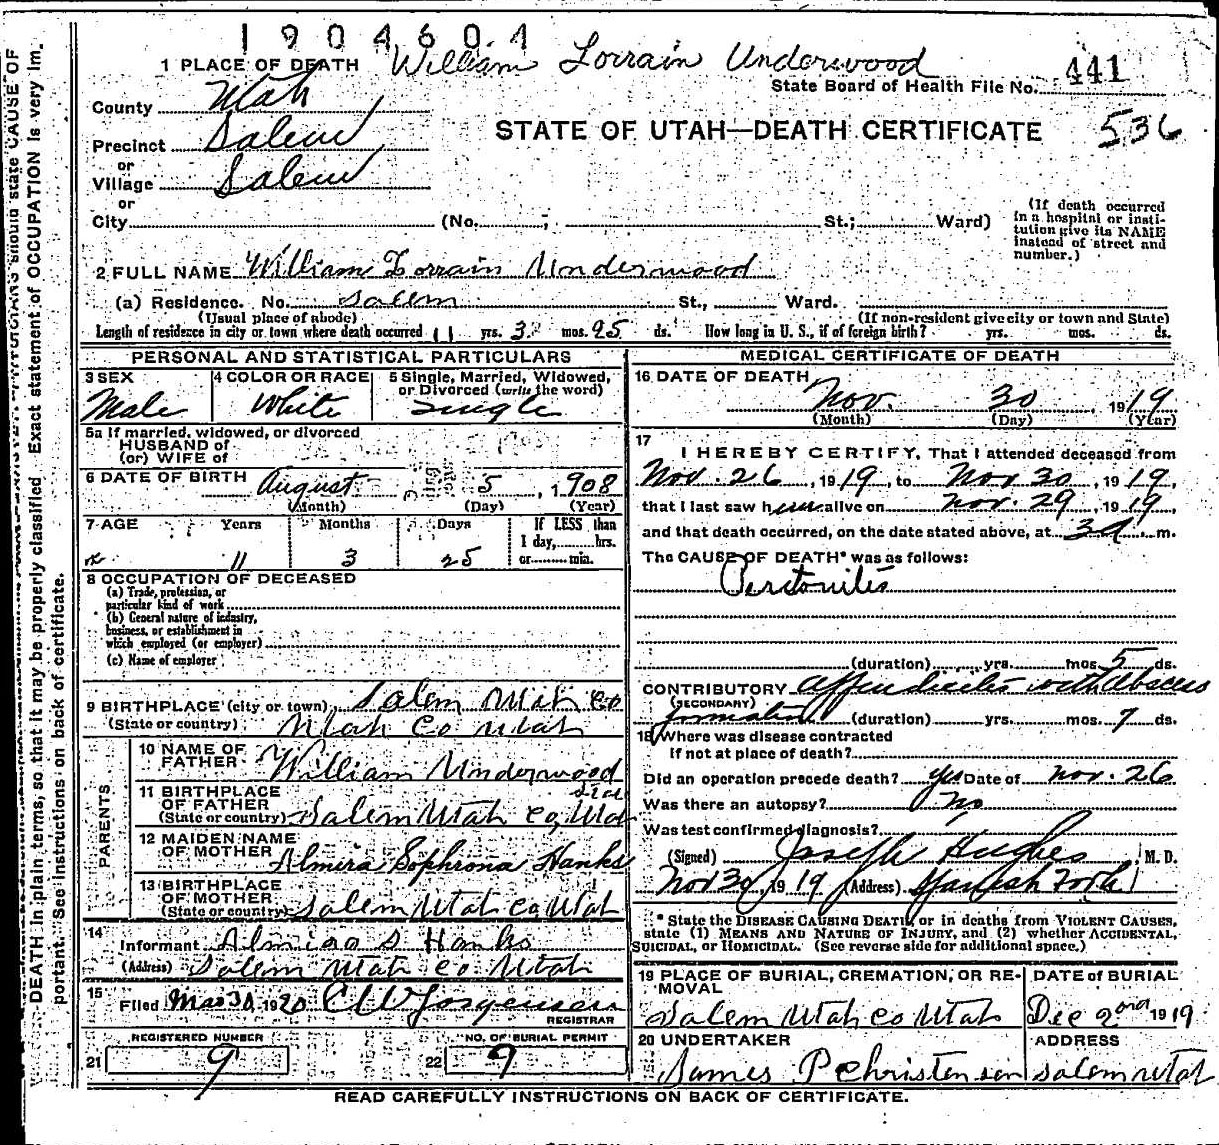 1904604
1 PLACE OF DEATH William Lorrain Underwood
State Board of Health File No. 441
County Utah
STATE OF UTAH—DEATH CERTIFICATE 536
Precinct Salem
or
Village Salem
or
City (No. ; St.; Ward)
(If death occurred in a hospital or institution give its NAME instead of street and number.)
2 FULL NAME William Lorrain Underwood
(a) Residence. No. Salem St., Ward.
(Usual place of abode) (If non-resident give city or town and State)
Length of residence in city or town where death occurred 11 yrs. 3 mos. 25 ds. How long in U. S., if of foreign birth? yrs. mos. ds.
PERSONAL AND STATISTICAL PARTICULARS
3 SEX 4 COLOR OR RACE 5 Single, Married, Widowed, or Divorced (write the word)
Male White Single
5a If married, widowed, or divorced
HUSBAND of
(or) WIFE of
6 DATE OF BIRTH August 5, 1908
(Month) (Day) (Year)
7 AGE Years Months Days If LESS than
1 day, hrs.
11 3 25 or min.
8 OCCUPATION OF DECEASED
(a) Trade, profession, or
particular kind of work
(b) General nature of industry,
business, or establishment in
which employed (or employer)
(c) Name of employer
9 BIRTHPLACE (city or town) Salem Utah Co
(State or country) Utah Co Utah
PARENTS
10 NAME OF
FATHER William Underwood
11 BIRTHPLACE
OF FATHER
(State or country) Salem Utah Co, Uta
12 MAIDEN NAME
OF MOTHER Almira Sophrona Hanks
13 BIRTHPLACE
OF MOTHER
(State or country) Salem Utah Co Utah
14
Informant S Hanks
(Address) Salem Utah Co Utah
15
Filed Mar 30, 1920 C W Jorgensen
REGISTRAR
REGISTERED NUMBER NO. OF BURIAL PERMIT
21 9 22 9
MEDICAL CERTIFICATE OF DEATH
16 DATE OF DEATH
Nov. 30 1919
(Month) (Day) (Year)
17
I HEREBY CERTIFY, That I attended deceased from
Nov. 26, 1919, to Nov 30, 1919,
that I last saw him alive on Nov. 29, 1919
and that death occurred, on the date stated above, at 3a m.
The CAUSE OF DEATH* was as follows:
Pertonitis
(duration) yrs. mos. 5 ds.
CONTRIBUTORY appendicitis with abscess
(SECONDARY)
formation (duration) yrs. mos. 7 ds.
18 Where was disease contracted
If not at place of death?
Did an operation precede death? yes Date of Nov. 26
Was there an autopsy? No
Was test confirmed diagnosis?
(Signed) Joseph Hughes, M. D.
Nov 30, 1919 (Address) Spanish Fork
* State the DISEASE CAUSING DEATH, or in deaths from VIOLENT CAUSES,
state (1) MEANS AND NATURE OF INJURY, and (2) whether ACCIDENTAL,
SUICIDAL, or HOMICIDAL. (See reverse side for additional space.)
19 PLACE OF BURIAL, CREMATION, OR RE-
MOVAL
DATE of BURIAL
Salem Utah Co Utah Dec 2nd 1919
20 UNDERTAKER ADDRESS
James P Christensen Salem Utah
READ CAREFULLY INSTRUCTIONS ON BACK OF CERTIFICATE.
should state CAUSE OF
DEATH in plain terms, so that it may be properly classified. Exact statement of OCCUPATION is very im-
portant. See instructions on back of certificate.